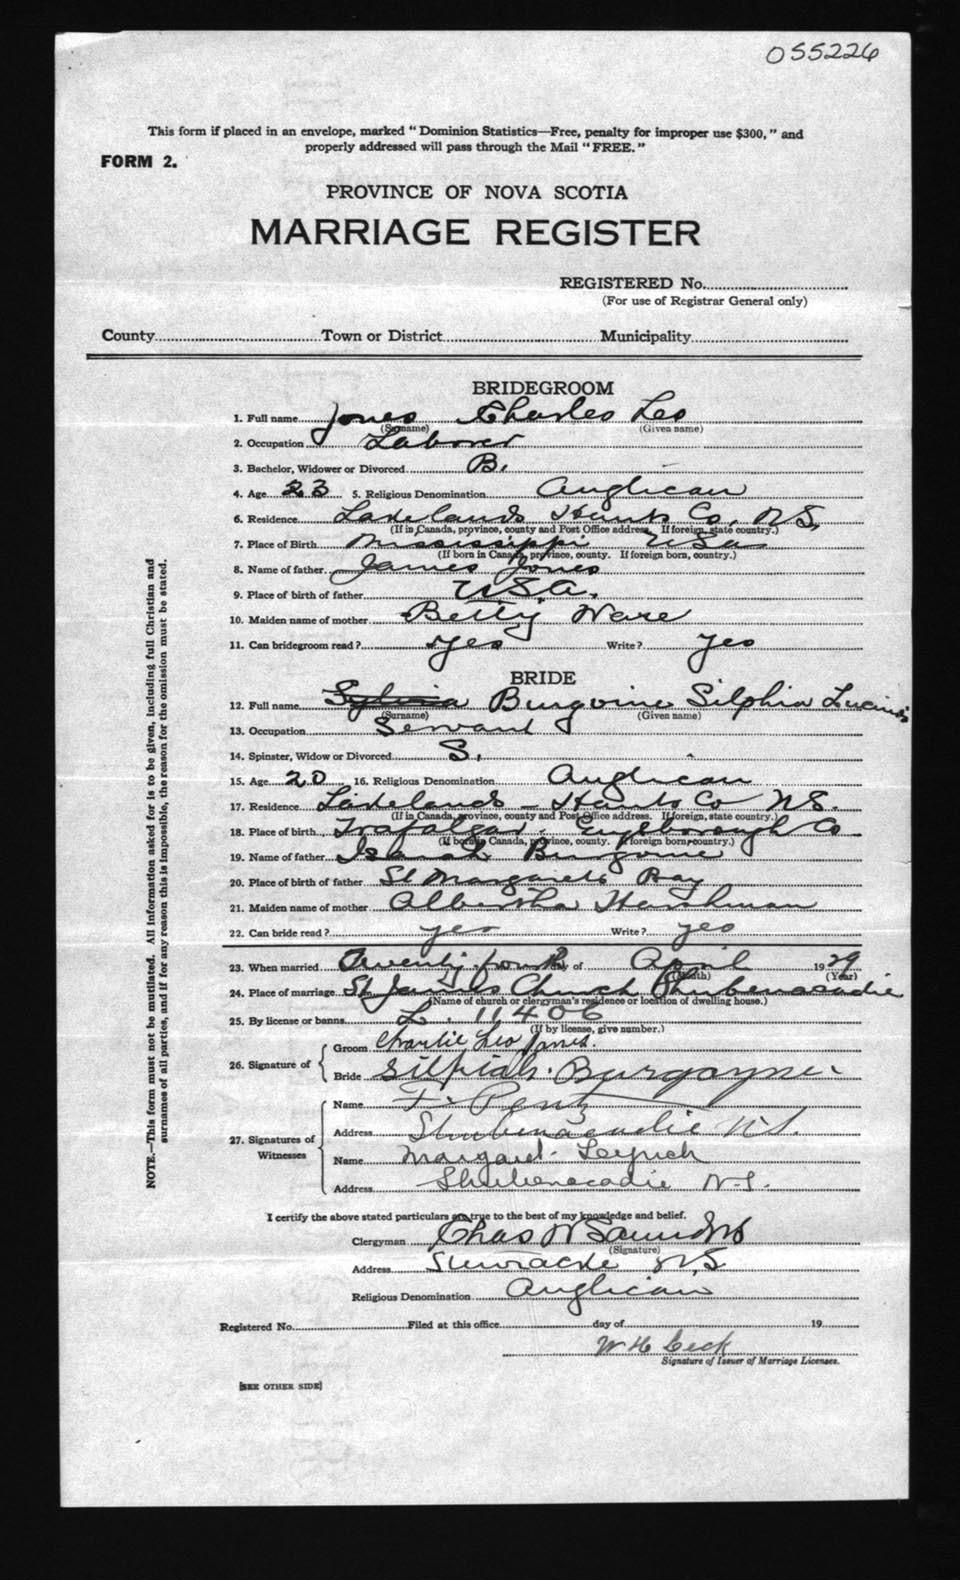 055226
This form if placed in an envelope, marked "Dominion Statistics—Free, penalty for improper use $300," and
properly addressed will pass through the Mail "FREE."
FORM 2.
PROVINCE OF NOVA SCOTIA
MARRIAGE REGISTER
REGISTERED No.
(For use of Registrar General only)
County Town or District Municipality
BRIDEGROOM
1. Full name Jones Charles Leo
(Surname) (Given name)
2. Occupation Laborer
3. Bachelor, Widower or Divorced B.
4. Age 23 5. Religious Denomination Anglican
6. Residence Lakelands Hants Co, N.S,
(If in Canada, province, county and Post Office address. If foreign, state country.)
7. Place of Birth Mississippi USa
(If born in Canada, province, county. If foreign born, country.)
8. Name of father James Jones
9. Place of birth of father USa.
10. Maiden name of mother Betty Ware
11. Can bridegroom read? yes Write? yes
BRIDE
12. Full name Sylvia Burgoine Silphia Lucinda
(Surname) (Given name)
13. Occupation Servant
14. Spinster, Widow or Divorced S.
15. Age 20 16. Religious Denomination Anglican
17. Residence Lakelands - Hants Co NS.
(If in Canada, province, county and Post Office address. If foreign, state country.)
18. Place of birth Trafalgar. Guysborough Co
(If born in Canada, province, county. If foreign born, country.)
19. Name of father Burgoine
20. Place of birth of father St Margarets Bay
21. Maiden name of mother Albertha Harshman
22. Can bride read? yes Write? yes
23. When married Twenty fourth day of April 1929
(Month) (Year)
24. Place of marriage St James Church Shubenacadie
(Name of church or clergyman's residence or location of dwelling house.)
25. By license or banns L. 11406
(If by license, give number.)
26. Signature of
Groom Charlie Leo Jones.
Bride Silpiah. Burgoyne
27. Signatures of Witnesses
Name F. Pentz
Address Shubenacadie N.S.
Name Margaret
Address Shubenacadie N.S.
I certify the above stated particulars are true to the best of my knowledge and belief.
Clergyman Chas W Saunders
(Signature)
Address Stewiacke N,S
Religious Denomination Anglican
Registered No. Filed at this office day of 19
W H
Signature of Issuer of Marriage Licenses.
[SEE OTHER SIDE]
NOTE.—This form must not be mutilated. All information asked for is to be given, including full Christian and
surnames of all parties, and if for any reason this is impossible, the reason for the omission must be stated.